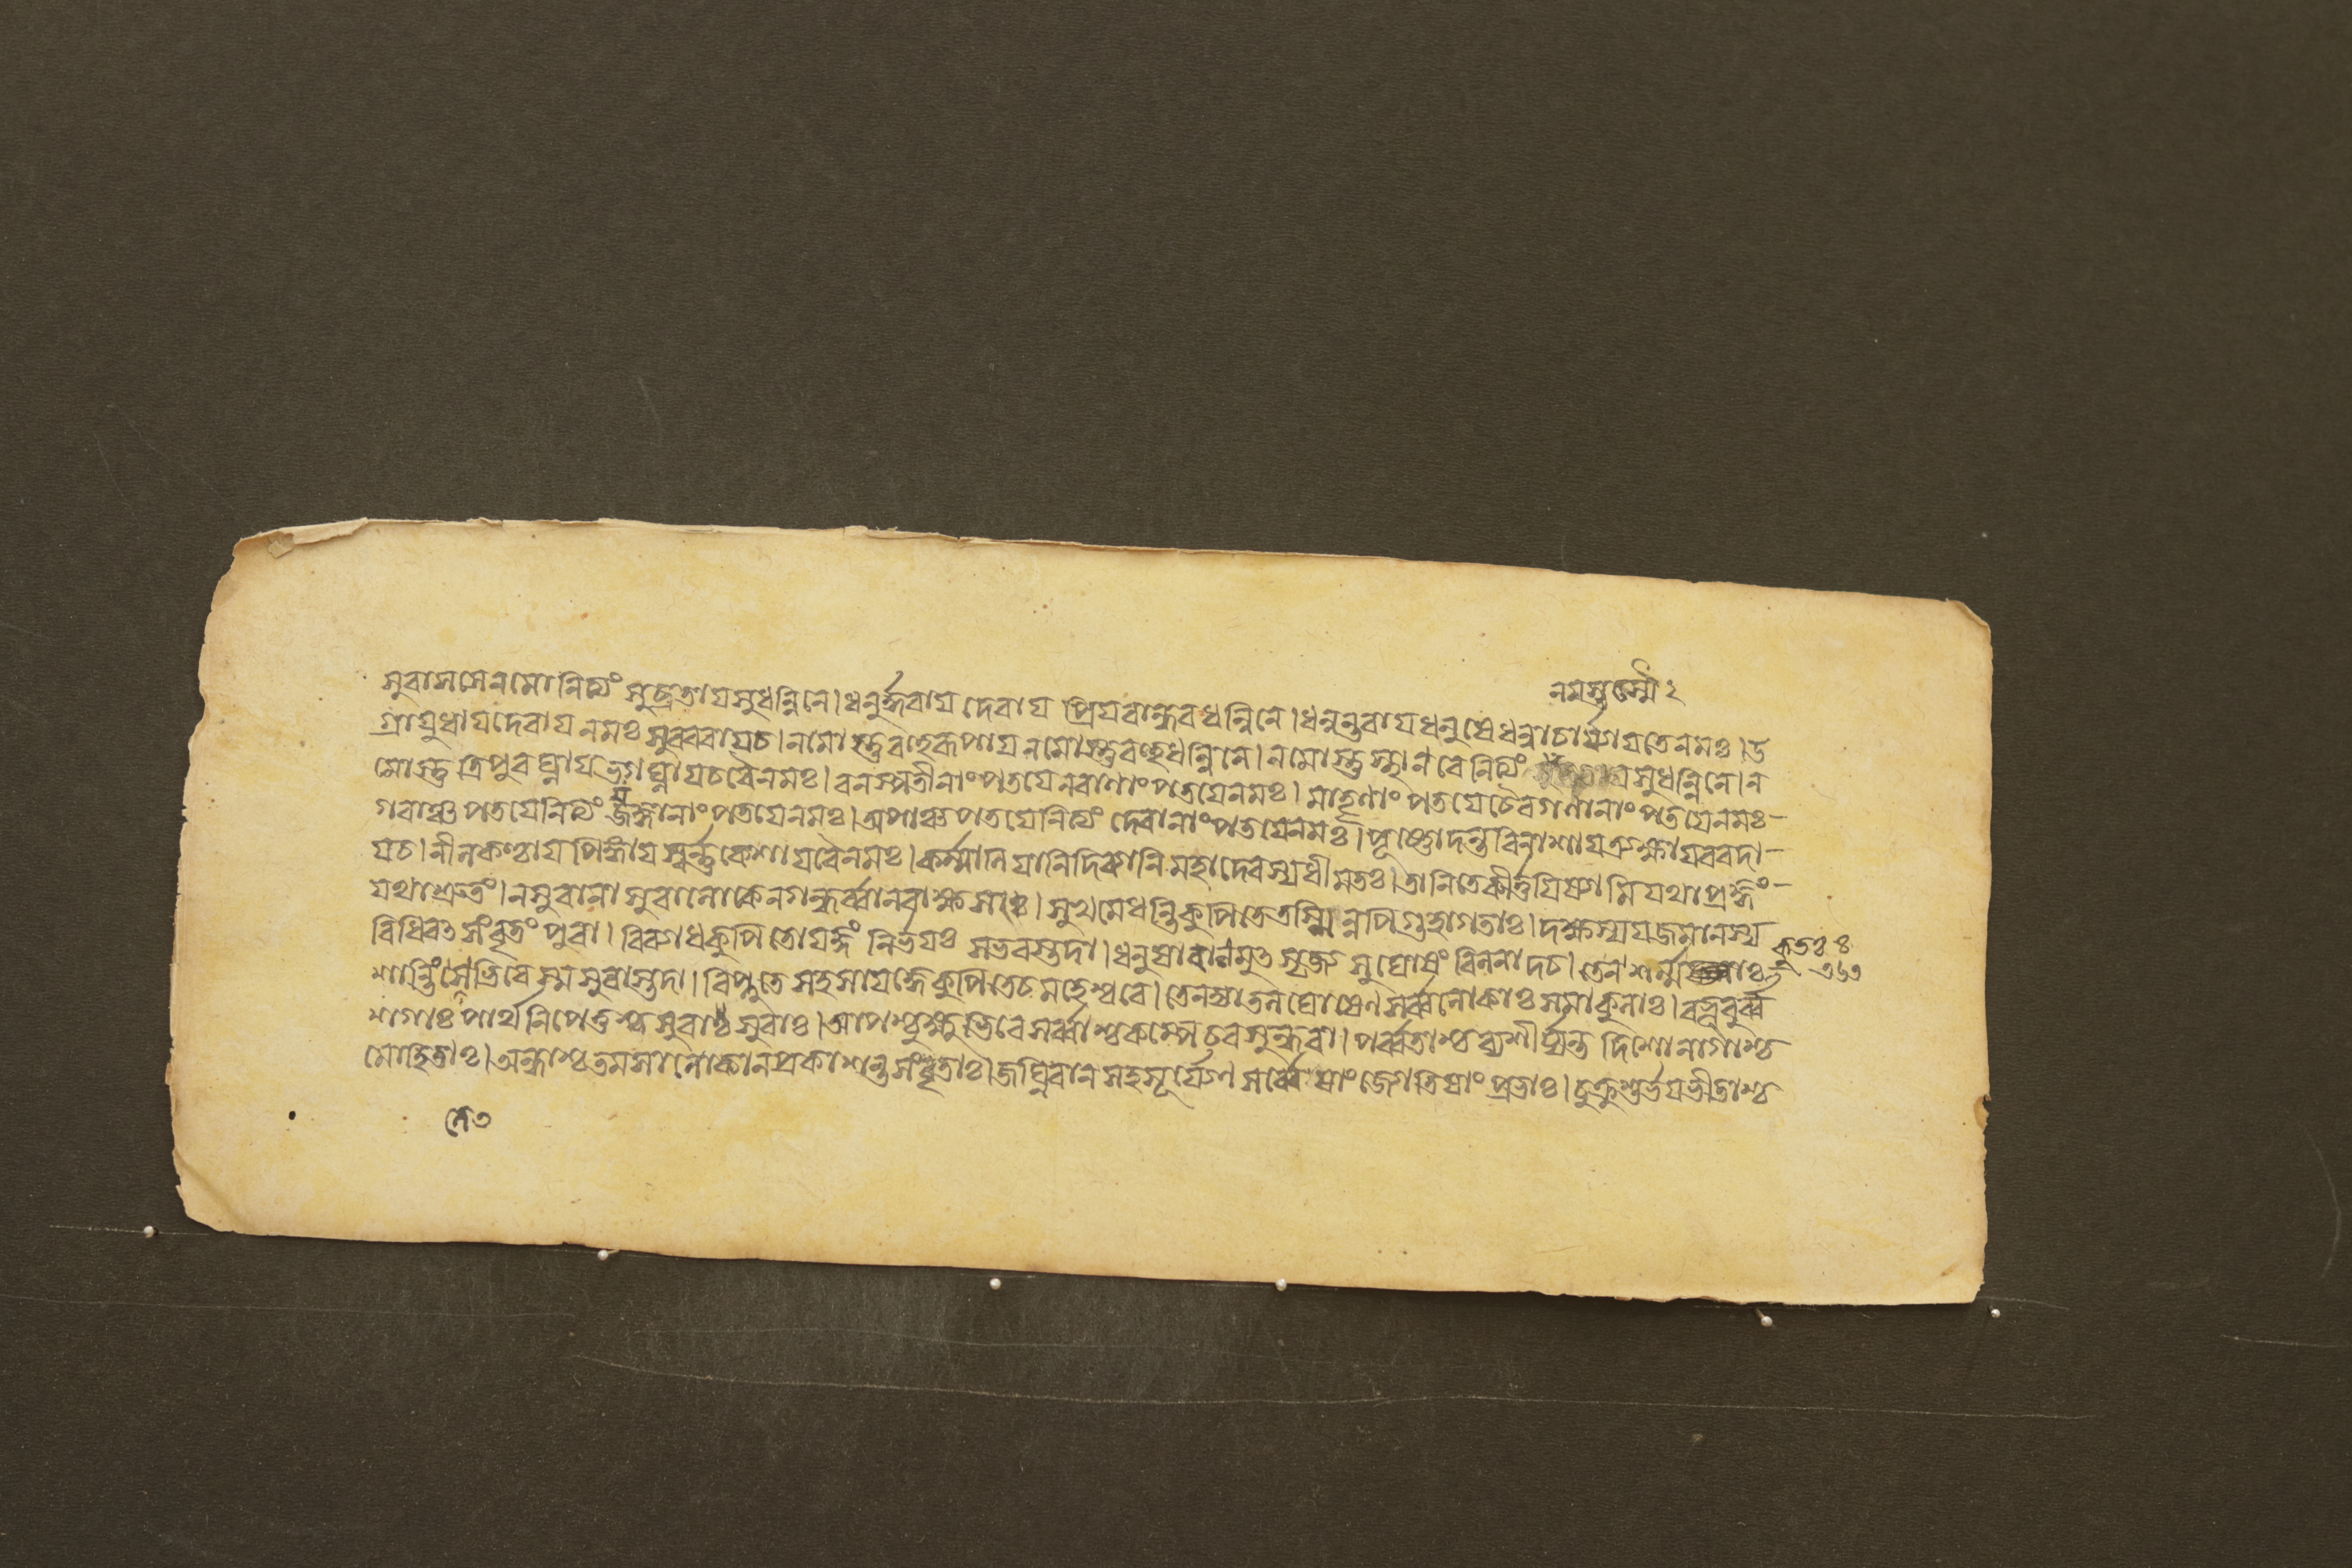 সুবাসসে নমো নিত্যং সুব্রতায় সুধন্বিনে। ধনুর্দ্ধরায় দেবায় প্রিয়বান্ধব ধন্বিনে। ধন্বন্তরায় ধনুষে ধন্বাচার্য্যায় তে নমঃ। উ
গ্রায়ুধায় দেবায় নমঃ সুরবরায় চ। নমোস্তু বহুরূপায় নমোস্তু বহুধন্বিনে। নমোস্তু স্থানবে নিত্যং সুধন্বিনে। ন
মোস্তু ত্রিপুরঘ্নায় ভগঘ্নায় চ বৈ নমঃ। বনস্পতীনাং পতয়ে নরাণাং পতয়ে নমঃ। মাতৃণাং পতয়ে চৈব গণানাং পতয়ে নমঃ
গবাঞ্চ পতয়ে নিত্যং যজ্ঞানাং পতয়ে নমঃ। অপাঞ্চ পতয়ে নিত্যং দেবানাং পতয়ে নমঃ। পূষ্ণো দন্তবিনাশায় ত্র্যক্ষায় বরদা
য় চ। নীলকণ্ঠায় পিঙ্গায় স্বর্ণকেশায় বৈ নমঃ। কর্ম্মাণি যানি দিব্যানি মহাদেবস্য ধীমতঃ। তানি তে কীর্ত্তয়িষ্যামি যথাপ্রজ্ঞং
যথাশ্রুতং। ন সুরা নাসুরা লোকে ন গন্ধর্ব্বা ন রাক্ষসাঃ। সুখমেধন্তি কুপিতে তস্মিন্নপি গুহাগতাঃ। দক্ষস্য যজমানস্য
বিধিবৎ সংবৃতং পুরা। বিব্যাধ কুপিতো যজ্ঞং নির্ভয়ঃ স ভবস্তদা। ধনুষা বাণমুৎসৃজ্য সুঘোষং বিননাদ চ। তে ন শর্ম্ম কুতঃ
শান্তিং লেভিরে স্ম সুরাস্তদা। বিদ্রুতে সহসা যজ্ঞে কুপিতে চ মহেশ্বরে। তেন জ্যাতলঘোষেণ সর্ব্বলোকাঃ সমাকুলাঃ। বভূবুর্ব্ব
শগাঃ পার্থ নিপেতুশ্চ সুরাঃ সুরাঃ। আপশ্চুক্ষুভিরে সর্ব্বাশ্চকম্পে চ বসুন্ধরা। পর্ব্বতাশ্চ ব্যশীর্য্যন্ত দিশো নাগাশ্চ
মোহিতাঃ। অন্ধাশ্চ তমসা লোকা ন প্রকাশন্ত সংবৃতাঃ। জঘ্নিবান সহ সূর্য্যেণ সর্ব্বেষাং জ্যোতিষাং প্রভাঃ। চুক্রুশুর্ভয়ভীতাশ্চ